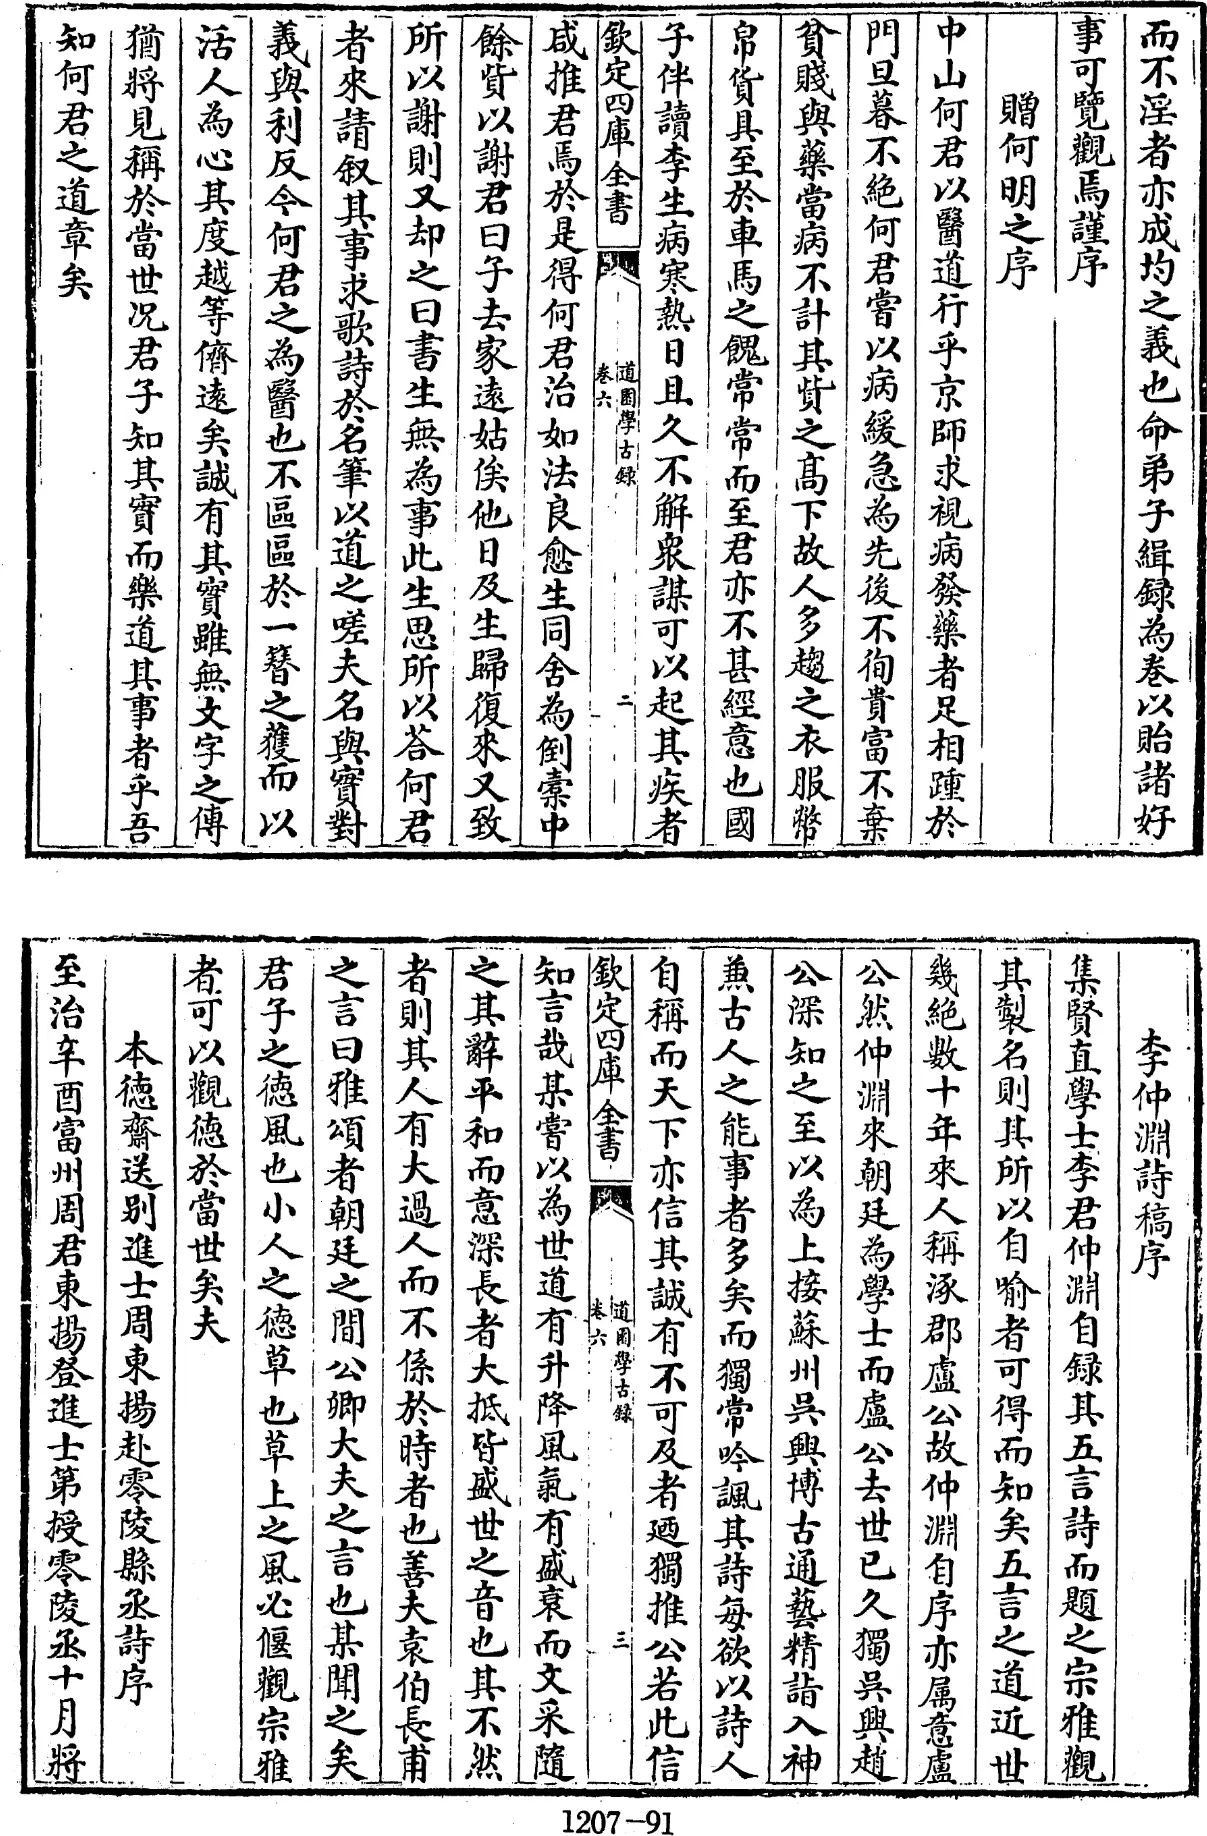 而不淫者亦成均之義也命弟子緝録為卷以貽諸好
事可覽觀焉謹序
贈何明之序
中山何君以醫道行乎京師求視病發藥者足相踵於
門旦暮不絶何君嘗以病緩急為先後不徇貴富不棄
貧賤與藥當病不計其貲之髙下故人多趨之衣服幣
帛貨具至於車馬之餽常常而至君亦不甚經意也國
子伴讀李生病寒熱日且久不解衆謀可以起其疾者
欽定四庫全書
道園學古録
卷六
二
咸推君焉於是得何君治如法良愈生同舍為倒橐中
餘貲以謝君曰子去家遠姑俟他日及生歸復來又致
所以謝則又却之曰書生無為事此生思所以答何君
者來請叙其事求歌詩於名筆以道之嗟夫名與實對
義與利反今何君之為醫也不區區於一簪之獲而以
活人為心其度越等儕遠矣誠有其實雖無文字之傳
猶將見稱於當世况君子知其實而樂道其事者乎吾
知何君之道章矣
李仲淵詩稿序
集賢直學士李君仲淵自録其五言詩而題之宗雅觀
其製名則其所以自喻者可得而知矣五言之道近世
幾絶數十年來人稱涿郡盧公故仲淵自序亦属意盧
公然仲淵來朝廷為學士而盧公去世已久獨吳興趙
公深知之至以為上接蘇州吳興博古通藝精詣入神
兼古人之能事者多矣而獨常吟諷其詩每欲以詩人
自稱而天下亦信其誠有不可及者廼獨推公若此信
欽定四庫全書
道園學古録
卷六
三
知言哉某嘗以為世道有升降風氣有盛衰而文采隨
之其辭平和而意深長者大抵皆盛世之音也其不然
者則其人有大過人而不係於時者也善夫袁伯長甫
之言曰雅頌者朝廷之間公卿大夫之言也某聞之矣
君子之徳風也小人之徳草也草上之風必偃觀宗雅
者可以觀徳於當世矣夫
本徳齋送别進士周東揚赴零陵縣丞詩序
至治辛酉富州周君東揚登進士第授零陵丞十月將
1207-91